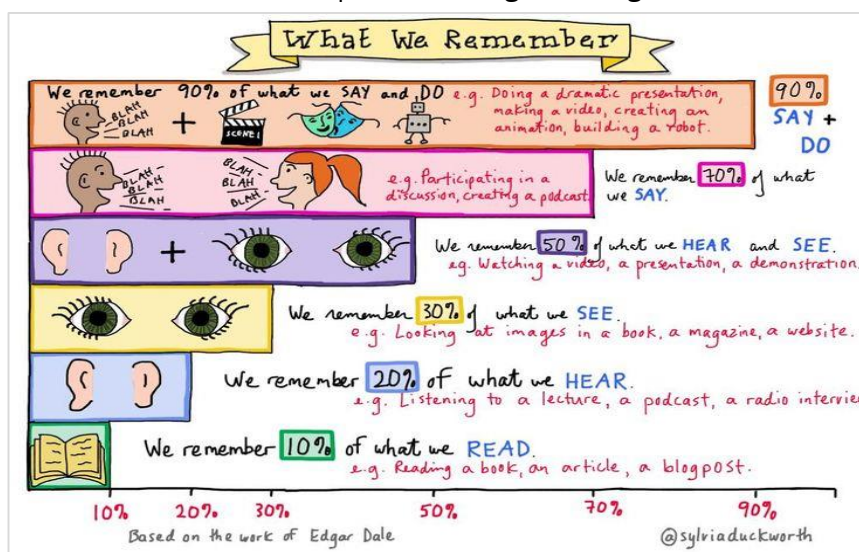 What We Remember
We remember 90% of what we SAY and DO e.g. Doing a dramatic presentation,
making a video, creating an
animation, building a robot.
BLAH
BLAH
BLAH
+
SCENE 1
90%
SAY +
DO
BLAH
BLAH
BLAH
BLAH
BLAH
BLAH
BLAH
e.g. Participating in a
discussion, creating a podcast
We remember 70% of what
we SAY.
+
We remember 50% of what we HEAR and SEE.
eg. Watching a video, a presentation, a demonstration.
We remember 30% of what we SEE.
e.g. Looking at images in a book, a magazine, a website.
We remember 20% of what we HEAR.
e.g. Listening to a lecture, a podcast, a radio interview
We remember 10% of what we READ.
e.g. Reading a book, an article, a blogpost.
10% 20% 30% 50% 70% 90%
Based on the work of Edgar Dale @sylviaduckworth